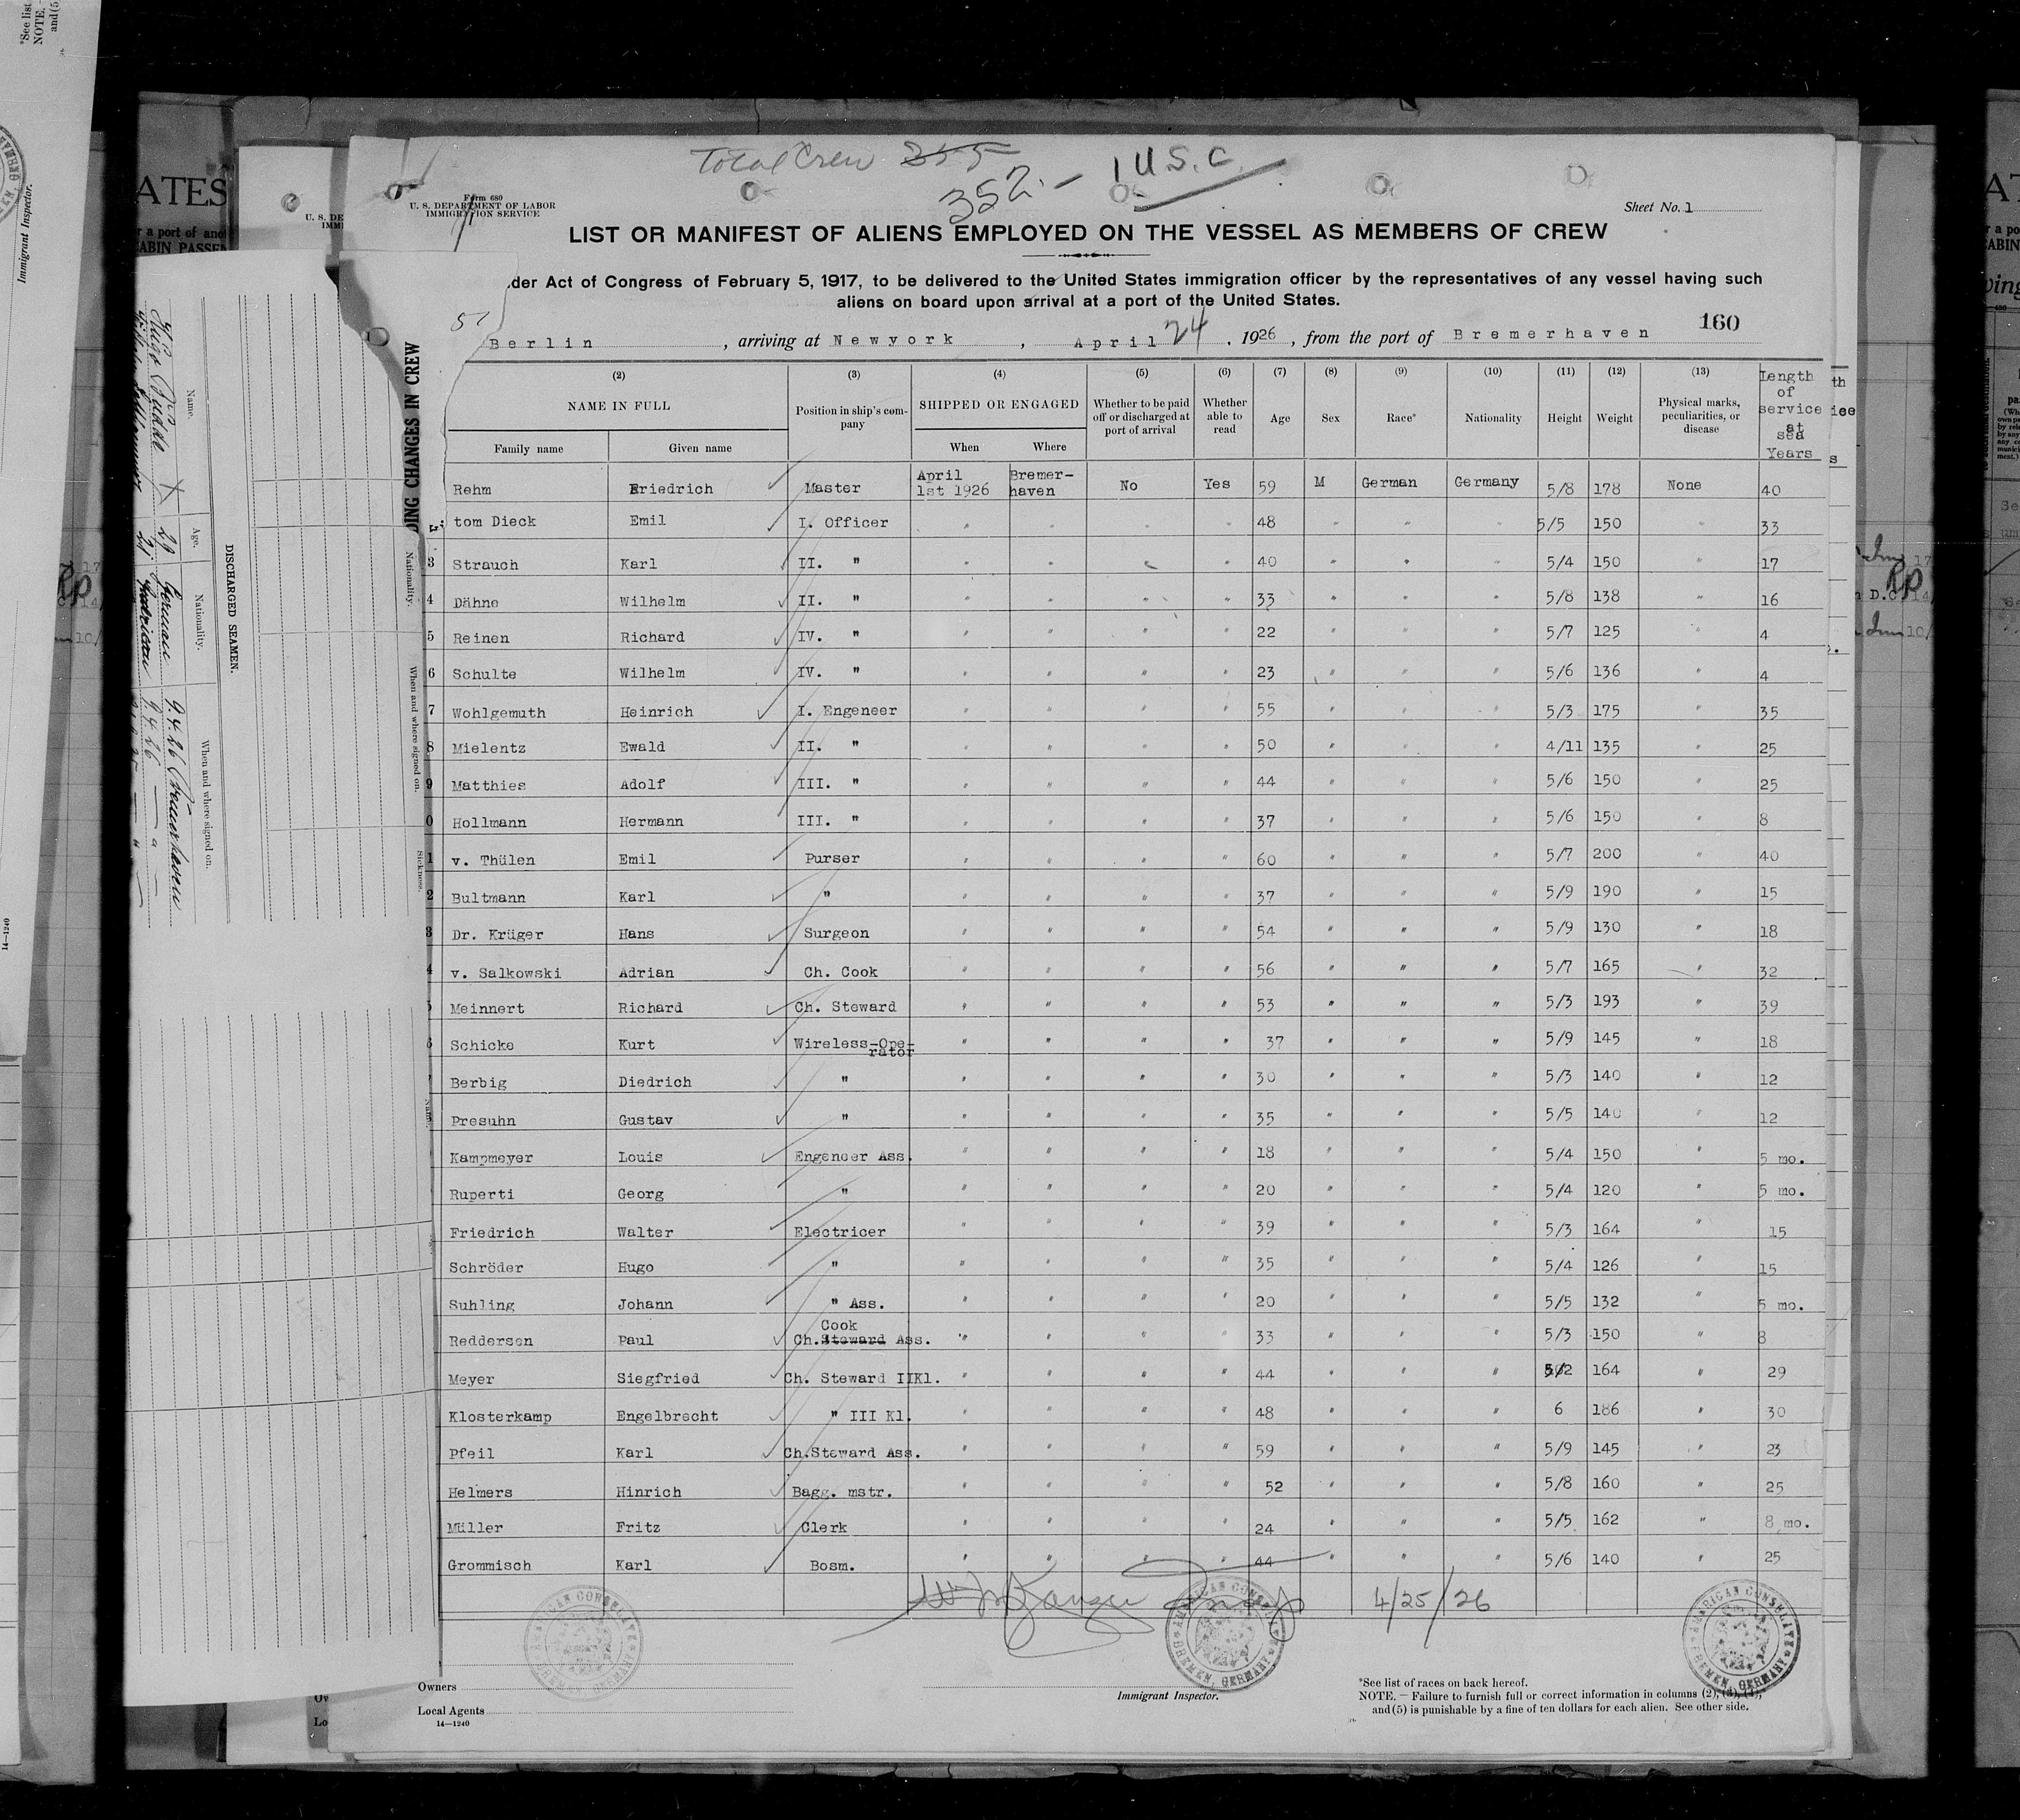 Total Crew 355
352.- 1 U.S.C.
Form 680
U. S. DEPARTMENT OF LABOR
IMMIGRATION SERVICE
Sheet No. 1
LIST OR MANIFEST OF ALIENS EMPLOYED ON THE VESSEL AS MEMBERS OF CREW
der Act of Congress of February 5, 1917, to be delivered to the United States immigration officer by the representatives of any vessel having such
aliens on board upon arrival at a port of the United States.
160
Berlin , arriving at Newyork , April 24 , 1926 , from the port of Bremerhaven
(2) (3) (4) (5) (6) (7) (8) (9) (10) (11) (12) (13)
NAME IN FULL Position in ship's company SHIPPED OR ENGAGED Whether to be paid off or discharged at port of arrival Whether able to read Age Sex Race* Nationality Height Weight Physical marks, peculiarities, or disease Length of service at sea Years
Family name Given name When Where
Rehm Friedrich Master April 1st 1926 Bremer-haven No Yes 59 M German Germany 5/8 178 None 40
tom Dieck Emil I. Officer " " " " 48 " " " 5/5 150 " 33
3 Strauch Karl II. " " " " " 40 " " " 5/4 150 " 17
4 Dähne Wilhelm II. " " " " " 33 " " " 5/8 138 " 16
5 Reinen Richard IV. " " " " " 22 " " " 5/7 125 " 4
6 Schulte Wilhelm IV. " " " " " 23 " " " 5/6 136 " 4
7 Wohlgemuth Heinrich I. Engeneer " " " " 55 " " " 5/3 175 " 35
8 Mielentz Ewald II. " " " " " 50 " " " 4/11 135 " 25
9 Matthies Adolf III. " " " " " 44 " " " 5/6 150 " 25
0 Hollmann Hermann III. " " " " " 37 " " " 5/6 150 " 8
1 v. Thülen Emil Purser " " " " 60 " " " 5/7 200 " 40
2 Bultmann Karl " " " " " 37 " " " 5/9 190 " 15
3 Dr. Krüger Hans Surgeon " " " " 54 " " " 5/9 130 " 18
4 v. Salkowski Adrian Ch. Cook " " " " 56 " " " 5/7 165 " 32
Meinnert Richard Ch. Steward " " " " 53 " " " 5/3 193 " 39
Schicke Kurt Wireless-Ope-rator " " " " 37 " " " 5/9 145 " 18
Berbig Diedrich " " " " " 30 " " " 5/3 140 " 12
Presuhn Gustav " " " " " 35 " " " 5/5 140 " 12
Kampmeyer Louis Engeneer Ass. " " " " 18 " " " 5/4 150 " 5 mo.
Ruperti Georg " " " " " 20 " " " 5/4 120 " 5 mo.
Friedrich Walter Electricer " " " " 39 " " " 5/3 164 " 15
Schröder Hugo " " " " " 35 " " " 5/4 126 " 15
Suhling Johann " Ass. " " " " 20 " " " 5/5 132 " 5 mo.
Reddersen Paul Ch. Steward Cook Ass. " " " " 33 " " " 5/3 150 " 8
Meyer Siegfried Ch. Steward IIKl. " " " " 44 " " " 5/2 164 " 29
Klosterkamp Engelbrecht " III Kl. " " " " 48 " " " 6 186 " 30
Pfeil Karl Ch.Steward Ass. " " " " 59 " " " 5/9 145 " 23
Helmers Hinrich Bagg. mstr. " " " " 52 " " " 5/8 160 " 25
Müller Fritz Clerk " " " " 24 " " " 5/5 162 " 8 mo.
Grommisch Karl Bosm. " " " " 44 " " " 5/6 140 " 25
4/25/26
AMERICAN CONSULATE BREMEN, GERMANY
AMERICAN CONSULATE BREMEN, GERMANY
AMERICAN CONSULATE BREMEN, GERMANY
Owners
Local Agents
14—1240
Immigrant Inspector.
*See list of races on back hereof.
NOTE. — Failure to furnish full or correct information in columns (2), (3), (4),
and (5) is punishable by a fine of ten dollars for each alien. See other side.
DING CHANGES IN CREW
Nationality.
When and where signed on.
Sickness.
DISCHARGED SEAMEN.
Name. Age. Nationality. When and where signed on.
29 German 9.4.26 Bremerhaven
21 9.4.26
ATES
r a port of ano
ABIN PASSEN
U. S. DE
IMMI
Immigrant Inspector.
14—1240
*See list
NOTE.
and (5